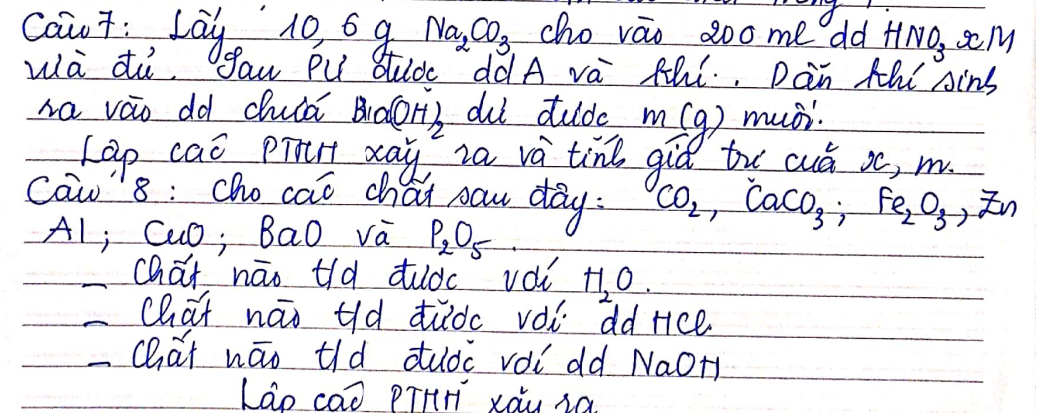 Câu 7: Lấy 10,6 g Na₂CO₃ cho vào 200 ml dd HNO₃ xM
vừa đủ. Sau PƯ được dd A và khí. Dẫn khí sinh
ra vào dd chứa Ba(OH)₂ dư được m (g) muối.
Lập các PTHH xảy ra và tính giá trị của x, m.
Câu 8: Cho các chất sau đây: CO₂, CaCO₃; Fe₂O₃, Zn
Al; CuO; BaO và P₂O₅.
- Chất nào t/d được với H₂O.
- Chất nào t/d được với dd HCl
- Chất nào t/d được với dd NaOH
Lập các PTHH xảy ra